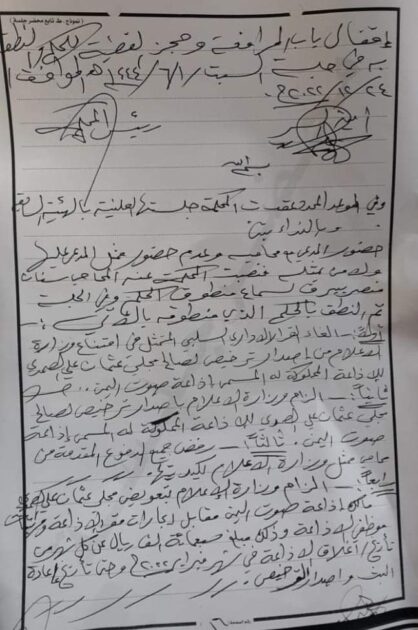 (نموذج تابع محضر جلسة)
إقفال باب المرافعة وحجز القضية للحكم والنطق
به في جلسة السبت ١/٦/١٤٤٤هـ الموافق
٢٤/١٢/٢٠٢٢م
أمين السر رئيس المحكمة
وفي الموعد المحدد عقدت المحكمة جلستها العلنية بالهيئة السابقة
وبالنداء تبين
حضور المدعي ومحاميه وعدم حضور ممثل المدعى عليها
ولا من يمثله فنصبت المحكمة عنه المحامي
منصر لسماع منطوق الحكم وفي الجلسة
تم النطق بالحكم الذي منطوقه بالآتي :-
أولاً :- الغاء القرار الاداري السلبي المتمثل في امتناع وزارة
الاعلام من إصدار ترخيص لصالح مجلي عثمان علي الصمدي
للاذاعة المملوكة له المسمى إذاعة صوت اليمن
ثانياً :- الزام وزارة الاعلام باصدار ترخيص لصالح
مجلي عثمان علي الصمدي للاذاعة المملوكة له المسمى إذاعة
صوت اليمن . ثالثاً :- رفض جميع الدفوع المقدمة من
محامي ممثل وزارة الاعلام
رابعاً :- الزام وزارة الاعلام بتعويض مجلي عثمان علي الصمدي
مالك إذاعة صوت اليمن مقابل ايجارات مقر الاذاعة
موظفي الاذاعة وذلك مبلغ سبعمائة الف ريال عن كل شهر من
تأريخ إغلاق الاذاعة في شهر فبراير ٢٠٢٢م وحتى تأريخ إعادة
البث واصدار الترخيص